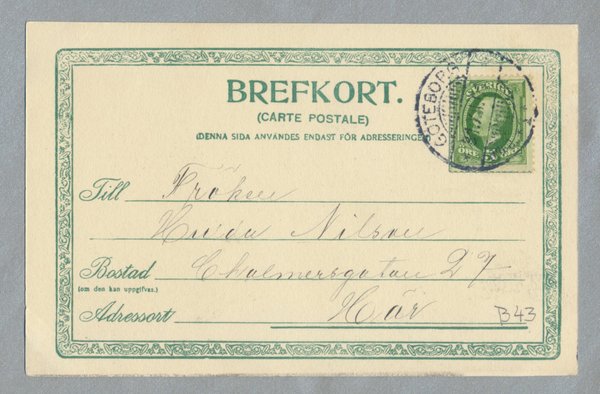 BREFKORT.
(CARTE POSTALE)
(DENNA SIDA ANVÄNDES ENDAST FÖR ADRESSERINGE
GÖTEBORG
SVERIGE
Till Fröken
Nilson
Bostad Chalmersgatan 27
(om den kan uppgifvas.)
Adressort Här
B43